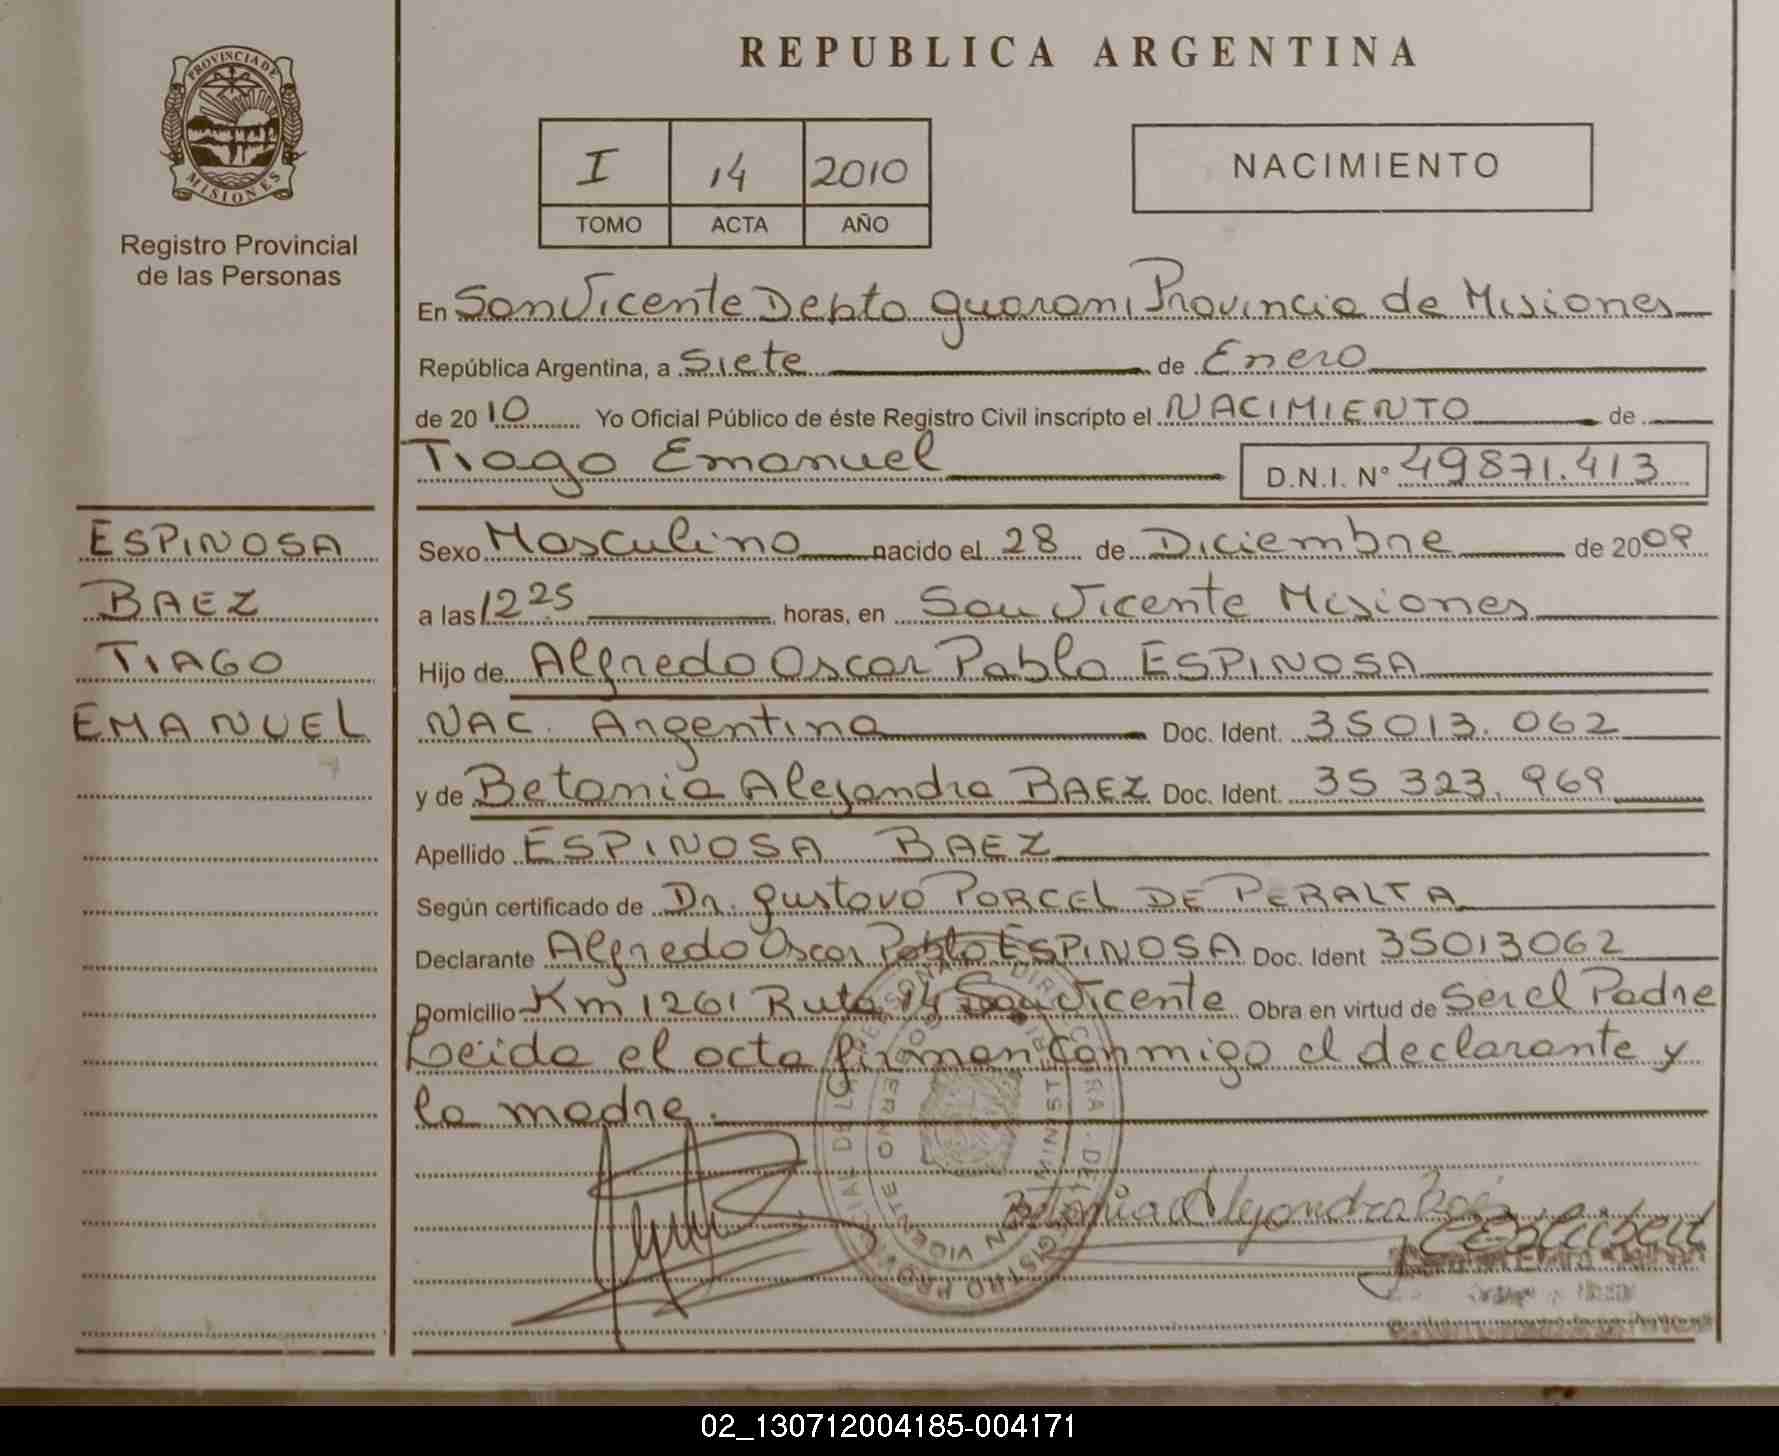 REPUBLICA ARGENTINA
PROVINCIA DE
MISIONES
Registro Provincial
de las Personas
I 14 2010
TOMO ACTA AÑO
NACIMIENTO
En San Vicente Depto guarani Provincia de Misiones
República Argentina, a Siete de Enero
de 2010 Yo Oficial Público de éste Registro Civil inscripto el NACIMIENTO de
Tiago Emanuel D.N.I. Nº 49871.413
ESPINOSA
BAEZ
TIAGO
EMANUEL
Sexo Masculino nacido el 28 de Diciembre de 2009
a las 1225 horas, en San Vicente Misiones
Hijo de Alfredo Oscar Pablo ESPINOSA
NAC. Argentina Doc. Ident. 35013.062
y de Betania Alejandra BAEZ Doc. Ident. 35 323.969
Apellido ESPINOSA BAEZ
Según certificado de Dr. gustavo PORCEL DE PERALTA
Declarante Alfredo Oscar Pablo ESPINOSA Doc. Ident 35013062
Domicilio Km 1261 Ruta 14 San Vicente Obra en virtud de Ser el Padre
Leida el acta firman conmigo el declarante y
la madre.
Betania Alejandra Baez
02_130712004185-004171